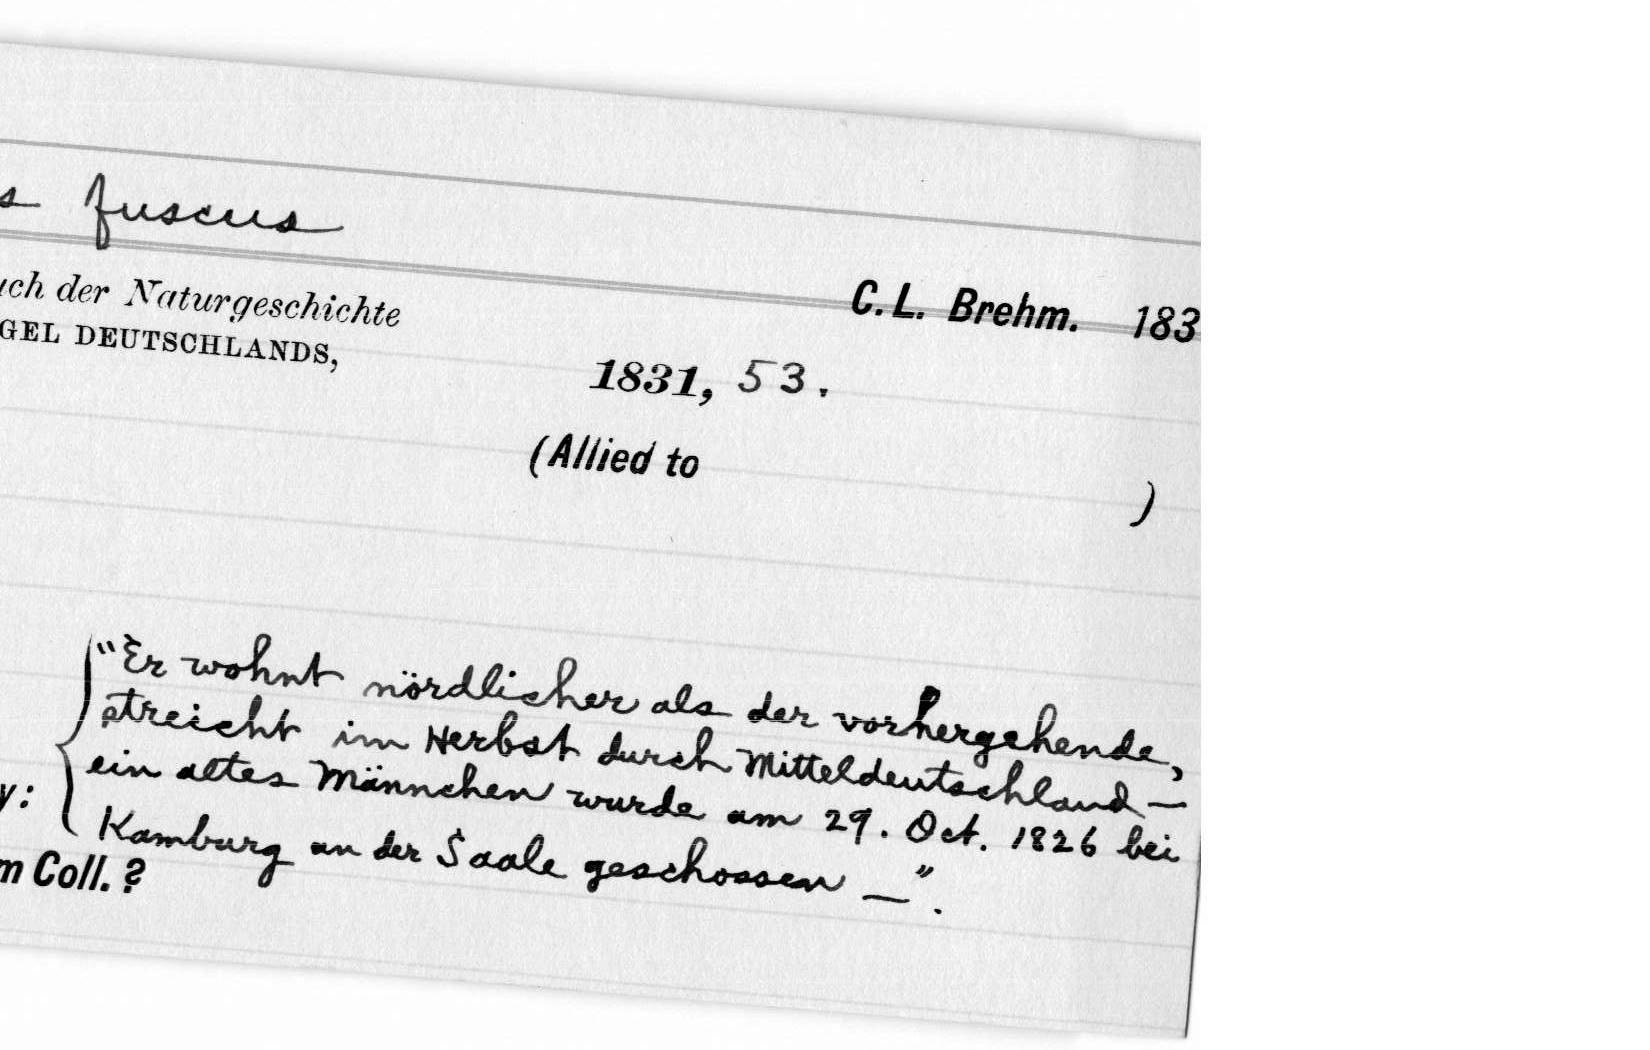 s fuscus
uch der Naturgeschichte
GEL DEUTSCHLANDS,
C.L. Brehm. 183
1831, 53.
(Allied to
)
"Er wohnt nördlicher als der vorhergehende,
streicht im Herbst durch Mitteldeutschland —
ein altes Männchen wurde am 29. Oct. 1826 bei
y:
Kamburg an der Saale geschossen —".
m Coll. ?